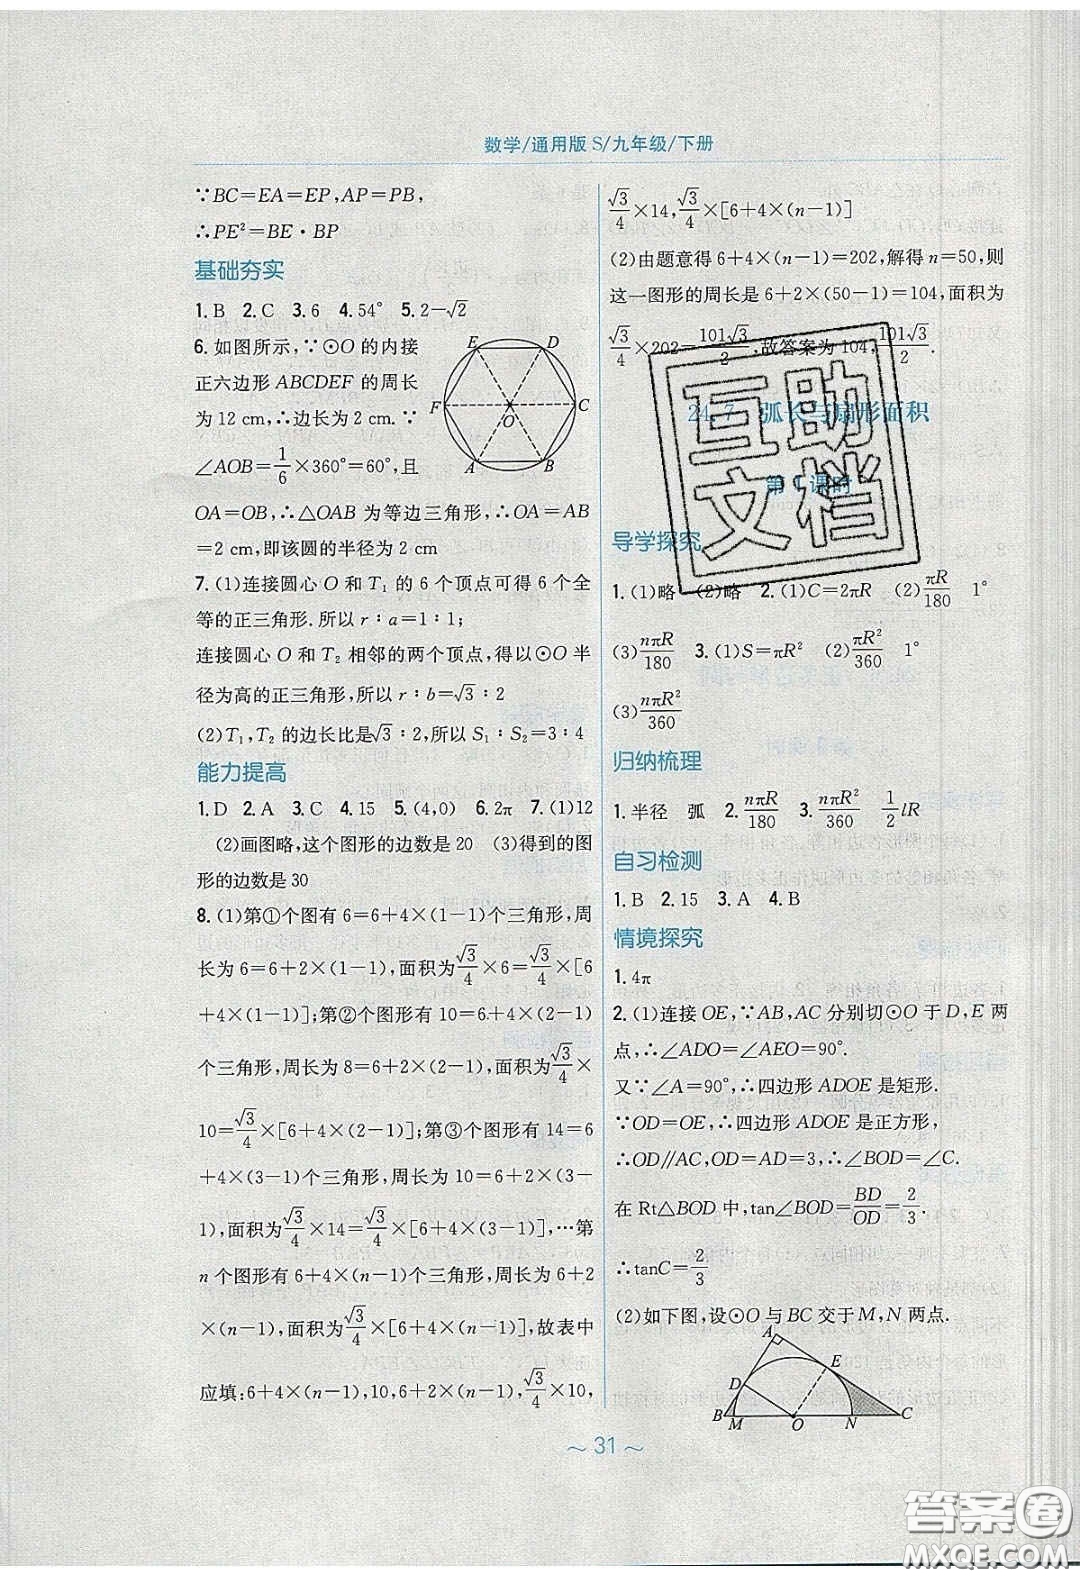 数学/通用版 S/九年级/下册
∵BC=EA=EP,AP=PB,
∴PE²=BE·BP
基础夯实
1.B 2.C 3.6 4.54° 5.2-√2
6.如图所示,∵⊙O的内接
正六边形 ABCDEF 的周长
为 12 cm,∴边长为 2 cm.∵
∠AOB=1/6×360°=60°,且
OA=OB,∴△OAB 为等边三角形,∴OA=AB
=2 cm,即该圆的半径为 2 cm
E D
F O C
A B
7.(1)连接圆心 O 和 T₁ 的 6 个顶点可得 6 个全
等的正三角形.所以 r∶a=1∶1;
连接圆心 O 和 T₂ 相邻的两个顶点,得以⊙O 半
径为高的正三角形,所以 r∶b=√3∶2
(2)T₁,T₂ 的边长比是√3∶2,所以 S₁∶S₂=3∶4
能力提高
1.D 2.A 3.C 4.15 5.(4,0) 6.2π 7.(1)12
(2)画图略,这个图形的边数是 20 (3)得到的图
形的边数是 30
8.(1)第①个图有 6=6+4×(1-1)个三角形,周
长为 6=6+2×(1-1),面积为√3/4×6=√3/4×[6
+4×(1-1)];第②个图形有 10=6+4×(2-1)
个三角形,周长为 8=6+2×(2-1),面积为√3/4×
10=√3/4×[6+4×(2-1)];第③个图形有 14=6
+4×(3-1)个三角形,周长为 10=6+2×(3-
1),面积为√3/4×14=√3/4×[6+4×(3-1)],…第
n 个图形有 6+4×(n-1)个三角形,周长为 6+2
×(n-1),面积为√3/4×[6+4×(n-1)],故表中
应填:6+4×(n-1),10,6+2×(n-1),√3/4×10,
√3/4×14,√3/4×[6+4×(n-1)]
(2)由题意得 6+4×(n-1)=202,解得 n=50,则
这一图形的周长是 6+2×(50-1)=104,面积为
√3/4×202=101√3/2.故答案为 104,101√3/2.
24.7 弧长与扇形面积
第1课时
互助
文档
导学探究
1.(1)略 (2)略 2.(1)C=2πR (2)πR/180 1°
(3)nπR/180 3.(1)S=πR² (2)πR²/360 1°
(3)nπR²/360
归纳梳理
1.半径 弧 2.nπR/180 3.nπR²/360 1/2lR
自习检测
1.B 2.15 3.A 4.B
情境探究
1.4π
2.(1)连接 OE,∵AB,AC 分别切⊙O 于 D,E 两
点,∴∠ADO=∠AEO=90°.
又∵∠A=90°,∴四边形 ADOE 是矩形.
∵OD=OE,∴四边形 ADOE 是正方形,
∴OD∥AC,OD=AD=3,∴∠BOD=∠C.
在 Rt△BOD 中,tan∠BOD=BD/OD=2/3.
∴tanC=2/3
(2)如下图,设⊙O 与 BC 交于 M,N 两点.
A
E
D
B M O N C
～ 31 ～
答案圈
MXQE.COM